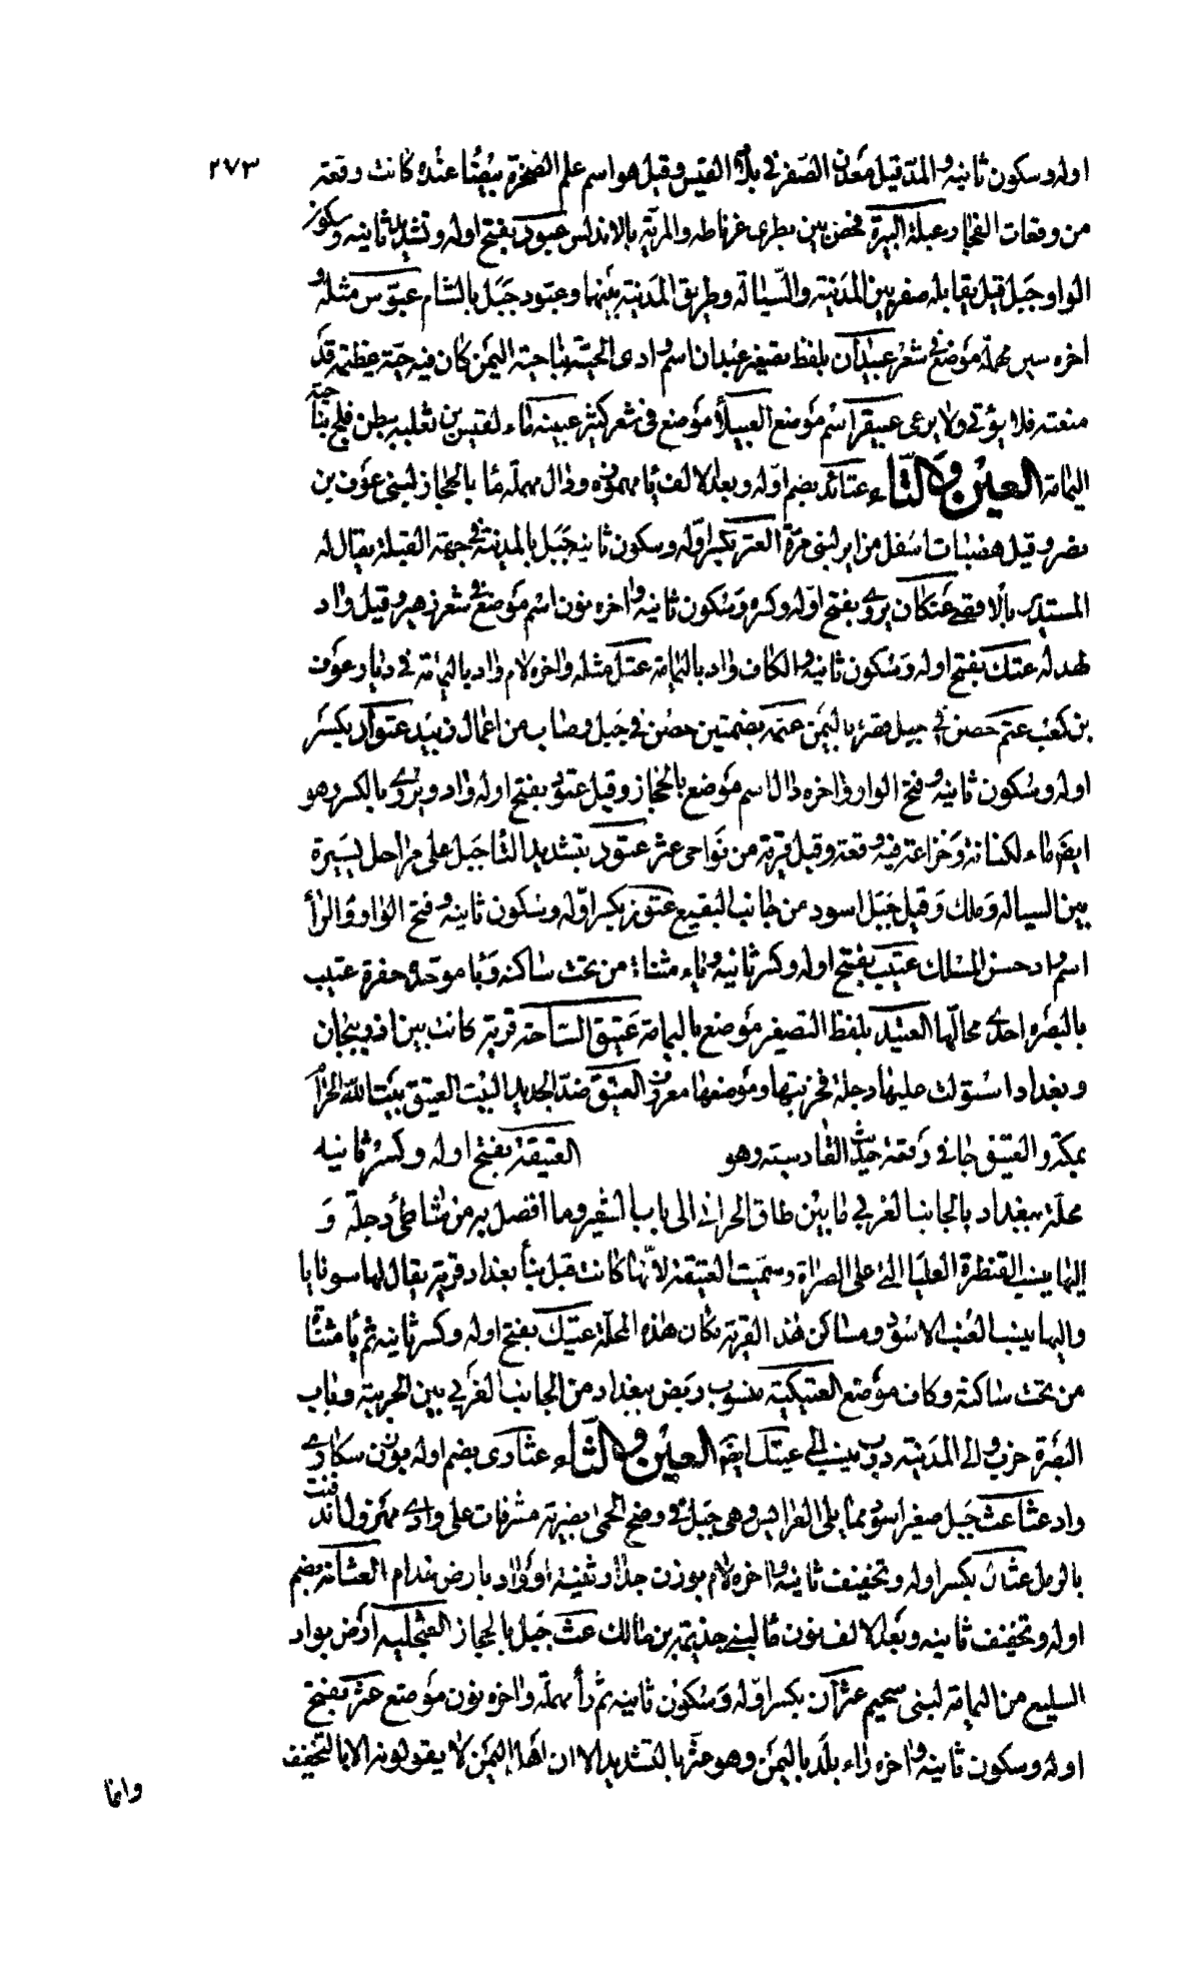 ٢٧٣
اوله وسكون ثانيه والمد قيل معدن الصفر فى بلاد القيس وقيل هو اسم علم الصخرة بيضا عنده كانت وقعة
من وقعات الفجار عبلة البيرة فحص بين نظرى غرناطه والمرية بالاندلس عبود بفتح اوله وتشديد ثانيه وسكون
الواو جبل قيل يقابله صفر بين المدينة والسيالة وطريق المدينة بينهما وعبود جبل بالشام عبوس مثله و
اخره سين مهملة موضع فى شعر عبيدان بلفظ تصغير عبدان اسم وادى الحية بناحية اليمن كان فيه حية عظيمة قد
منعته فلا يؤتى ولا يرعى عبيقر اسم موضع العبيلا موضع فى شعر كثير عبينه ماء لقيس بن ثعلبه ببطن فلج بناحية
اليمامة العين والتاء عتائد بضم اوله وبعد الالف يا مهموزه ودال مهملة ما بالحجاز لبنى عوف بن
نصر وقيل هضبات اسفل من ابر لبنى مرة العتر بكسر اوله وسكون ثانيه جبل بالمدينة فى جهة القبلة يقال له
المستدير بالاقصى عتكان يروى بفتح اوله وكسره وسكون ثانيه واخره نون اسم موضع فى شعر زهير وقيل واد
لهد له عتك بفتح اوله وسكون ثانيه والكاف واد باليمامة عتل مثله واخره لام واد باليمامة فى ديار عوف
بن كعب عتم حصن فى جبل باليمن عتمه بضمتين حصن فى جبل وصاب من اعمال زبيد عتواد بكسر
اوله وسكون ثانيه وفتح الواو واخره دال اسم موضع بالحجاز وقيل عتود بفتح اوله واد ويروى بالكسر وهو
ايضا ماء لكنانة وخزاعة فيه وقعة وقيل قرية من نواحى عثر عتود بتشديد التا جبل على مراحل يسيرة
بين السياله وملل وقيل جبل اسود من جانب البقيع عتور بكسر اوله وسكون ثانيه وفتح الواو والرا
اسم واد حسن المسلك عتيب بفتح اوله وكسر ثانيه وياء مثناة من تحت ساكنه وبا موحده جفرة عتيب
بالبصره احدى محالها العتيد بلفظ التصغير موضع باليمامة عتيق الساحة قرية كانت بين اذربيجان
وبغداد استولت عليها دجلة فخربتها وموضعها معروف العتيق ضد الجديد البيت العتيق بيت الله الحرام
بمكة والعتيق جا فى وقعة حديث القادسيه وهو العتيقة بفتح اوله وكسر ثانيه
محلة ببغداد بالجانب الغربى ما بين طاق الحرانى الى باب الشعير وما افصل به من شاطئ دجلة و
اليها ينسب القنطرة العليا التى على الصراة وسميت العتيقة لانها كانت قبل بنا بغداد قرية يقال لها سونايا
واليها ينسب العنب الاسود ومساكن هذه القرية مكان هذه المحلة عتيك بفتح اوله وكسر ثانيه ثم يا مثناة
من تحت ساكنة وكاف موضع العتيكية منسوب ربض ببغداد من الجانب الغربى بين الحربية وباب
البصرة خرب والى المدينة درب ينسب الى عتيك ايضا العين والثاء عثاوى بضم اوله بوزن سكارى
واد عثاعث جبل صغير اسود مما يلى وهى جبل فى وضح الحمى بضرية مشرفات على وادى مهزول اندفنت
بالرمل عثال بكسر اوله وتخفيف ثانيه واخره لام بوزن جدال ثنية او واد بارض جذام العثانه بضم
اوله وتخفيف ثانيه وبعد الالف نون ما لبنى جذيمة بن مالك عث جبل بالحجاز العثجلية ارض بواد
السليع من اليمامة لبنى سحيم عثران بكسر اوله وسكون ثانيه ثم را مهملة واخره نون موضع عثر بفتح
اوله وسكون ثانيه واخره راء بلد باليمن وهو عثر بالتشديد الا ان اهل اليمن لا يقولونه الا بالتخفيف
وانما